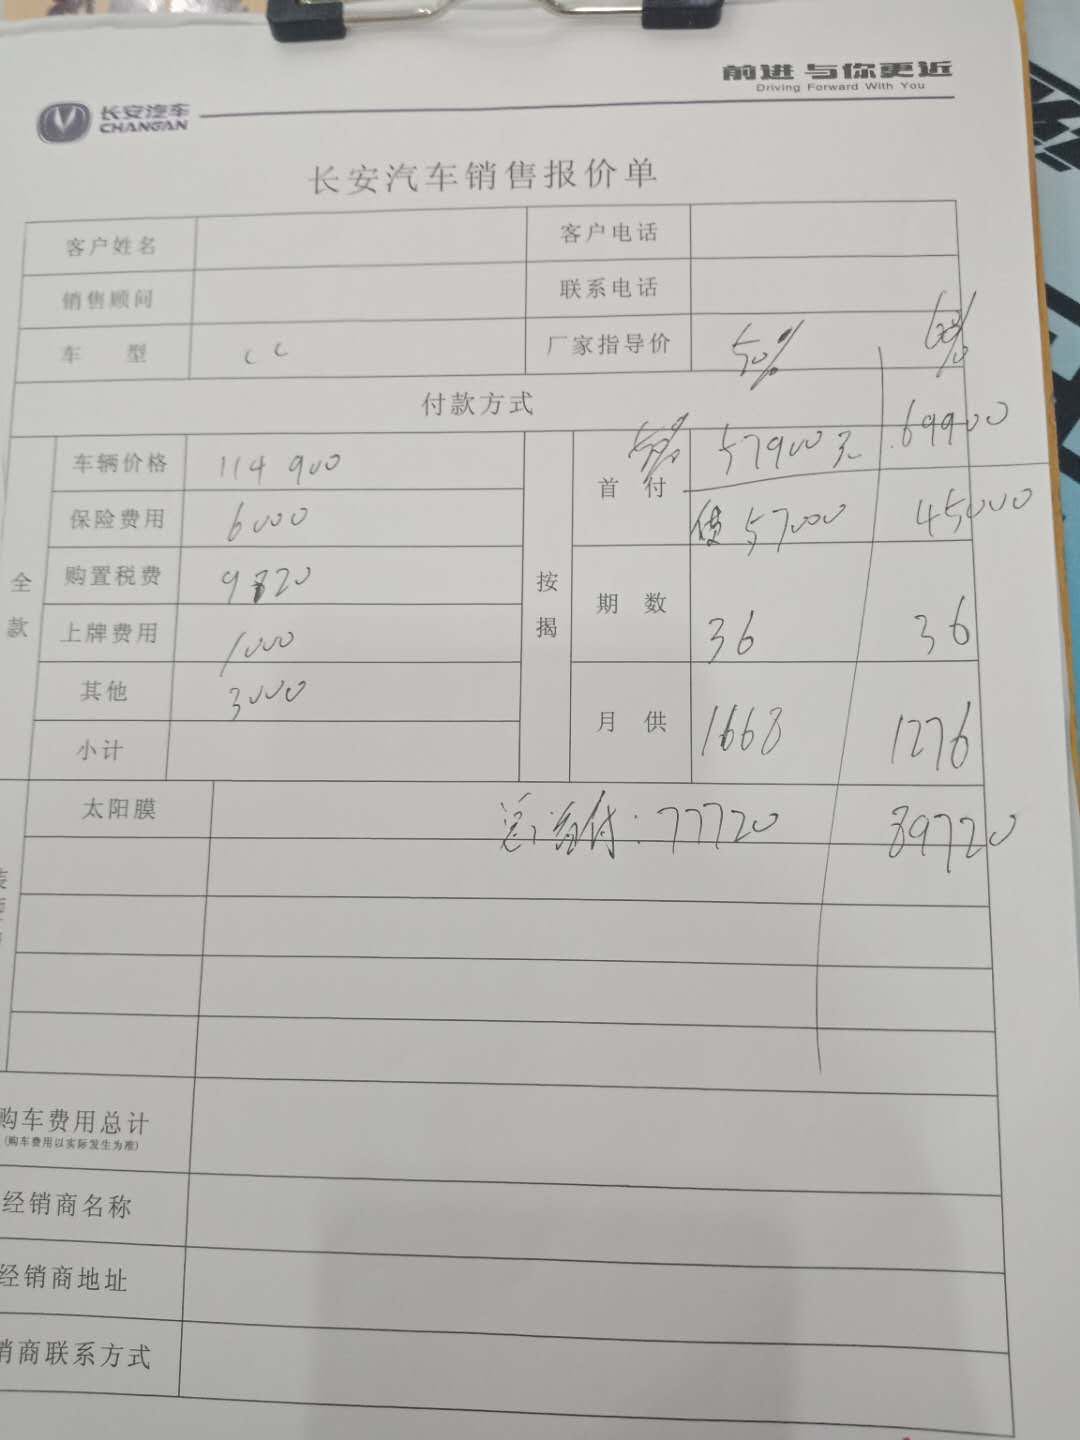 前进 与你更近
Driving Forward With You
长安汽车
CHANGAN
长安汽车销售报价单
客户姓名 客户电话
销售顾问 联系电话
车 型 CC 厂家指导价 50% 60%
付款方式
全款
车辆价格 114900
保险费用 6000
购置税费 9820
上牌费用 1000
其他 3000
小计
按揭
首 付 57900元 69900
贷 57000 45000
期 数 36 36
月 供 1668 1276
太阳膜 总首付：77720 89720
购车费用总计
(购车费用以实际发生为准)
经销商名称
经销商地址
销商联系方式